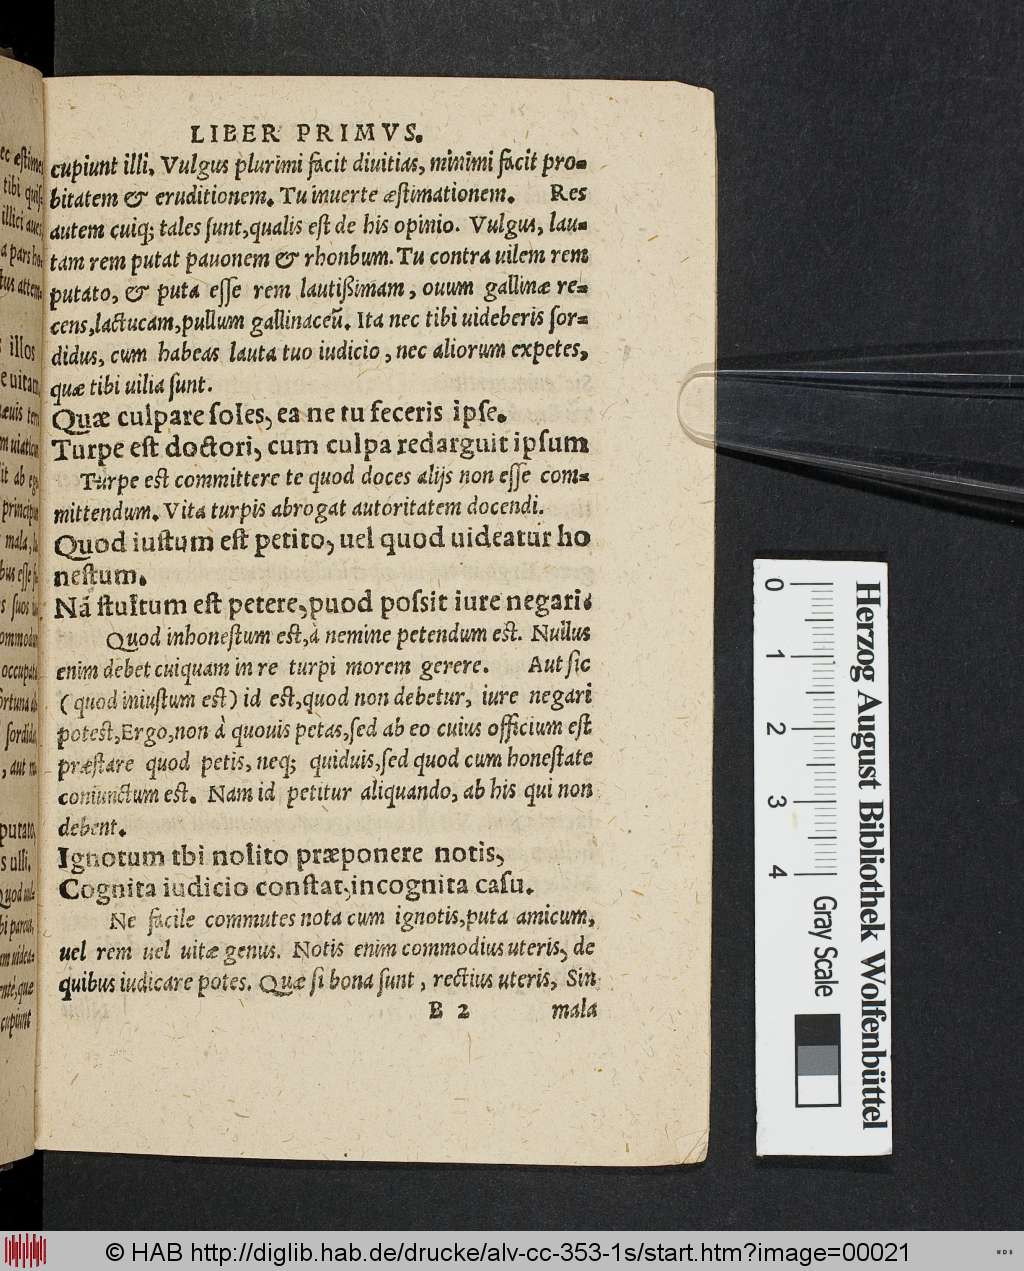 LIBER PRIMVS.
cupiunt illi. Vulgus plurimi facit diuitias, minimi facit pro=
bitatem & eruditionem. Tu inuerte æstimationem. Res
autem cuiq; tales sunt, qualis est de his opinio. Vulgus, lau=
tam rem putat pauonem & rhonbum. Tu contra uilem rem
putato, & puta esse rem lautißimam, ouum gallinæ re=
cens, lactucam, pullum gallinaceũ. Ita nec tibi uideberis sor=
didus, cum habeas lauta tuo iudicio, nec aliorum expetes,
quæ tibi uilia sunt.
Quæ culpare soles, ea ne tu feceris ipse.
Turpe est doctori, cum culpa redarguit ipsum
Turpe est committere te quod doces alijs non esse com=
mittendum. Vita turpis abrogat autoritatem docendi.
Quod iustum est petito, uel quod uideatur ho
nestum.
Nã stultum est petere, puod possit iure negari.
Quod inhonestum est, à nemine petendum est. Nullus
enim debet cuiquam in re turpi morem gerere. Aut sic
(quod iniustum est) id est, quod non debetur, iure negari
potest, Ergo, non à quouis petas, sed ab eo cuius officium est
præstare quod petis, neq; quiduis, sed quod cum honestate
coniunctum est. Nam id petitur aliquando, ab his qui non
debent.
Ignotum tbi nolito præponere notis,
Cognita iudicio constat, incognita casu.
Ne facile commutes nota cum ignotis, puta amicum,
uel rem uel uitæ genus. Notis enim commodius uteris, de
quibus iudicare potes. Quæ si bona sunt, rectius uteris, Sin
B 2 mala
illos
putato,
s ulli.
cupiunt
0 1 2 3 4
Gray Scale
Herzog August Bibliothek Wolfenbüttel
© HAB http://diglib.hab.de/drucke/alv-cc-353-1s/start.htm?image=00021